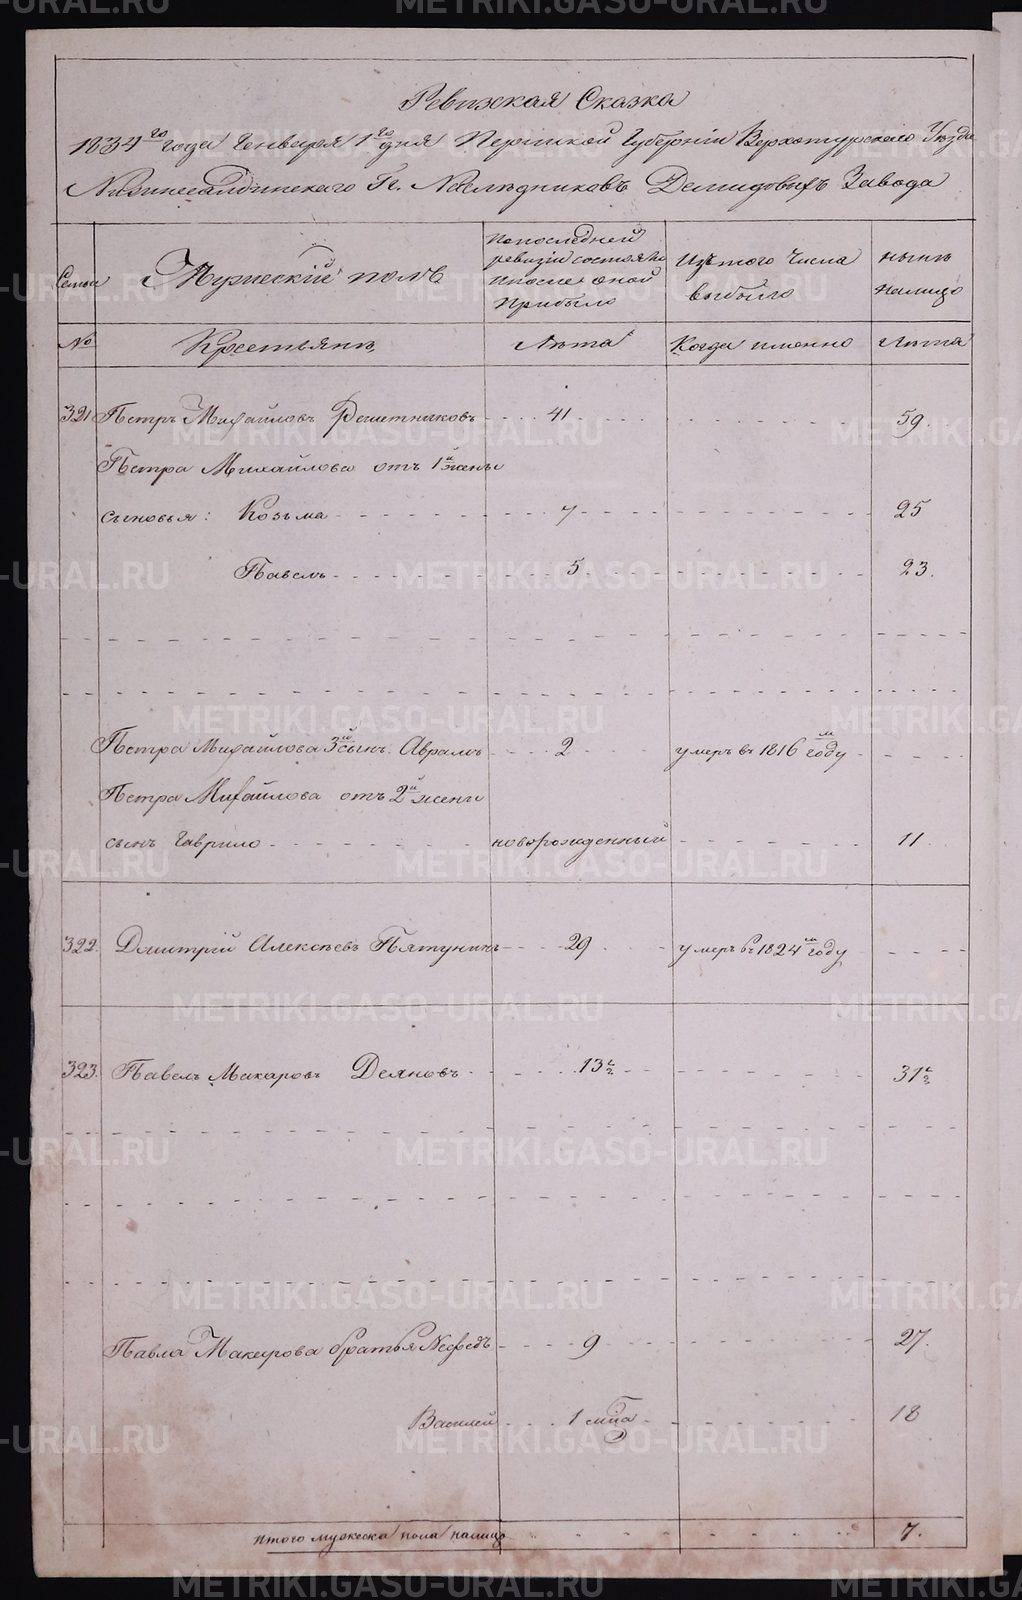 Ревизская Сказка
1834го года Генваря 1го дня Пермской Губерніи Верхотурскаго Уезда
Нижнесалдинскаго Гг. Наследниковъ Демидовыхъ Завода
Семьи
Мужескій полъ
По последней ревизіи состояло и после оной прибыло
Изъ того числа выбыло
ныне на лицо
№
Крестьяне
Лета
Когда именно
Лета
321 Петръ Михайловъ Решетниковъ 41 59.
Петра Михайлова отъ 1й жены
сыновья: Козьма 7 25
Павелъ 5 23.
Петра Михайлова 3й сынъ Аврамъ 2 умеръ въ 1816м году
Петра Михайлова отъ 2й жены
сынъ Гаврило новорожденный 11
322. Дмитрій Алексеевъ Пятунинъ 29 умеръ въ 1824м году
323. Павелъ Макаровъ Деяновъ 13½ 31½
Павла Макарова братья Нефедъ 9 27.
Василей 1 мца 18
Итого мужеска пола налицо 7.
METRIKI.GASO-URAL.RU